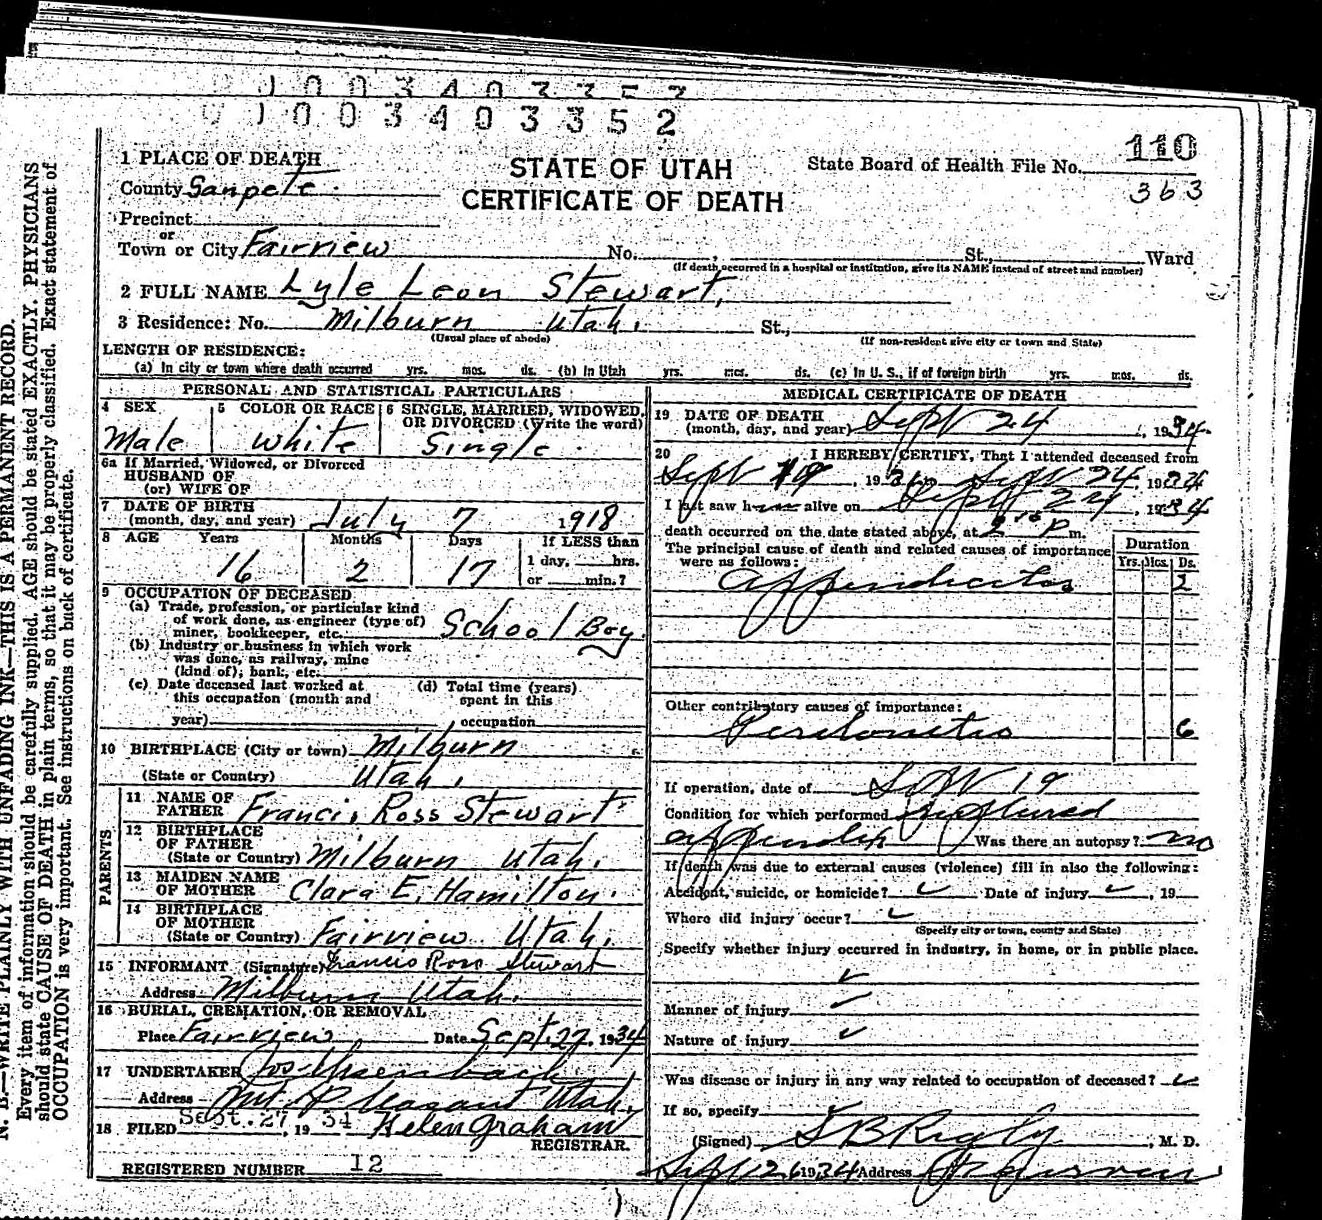 0 0 3 4 0 3 3 5 2
110
1 PLACE OF DEATH
STATE OF UTAH
CERTIFICATE OF DEATH
State Board of Health File No.
363
County Sanpete.
Precinct
or
Town or City Fairview No. St., Ward
(If death occurred in a hospital or institution, give its NAME instead of street and number)
2 FULL NAME Lyle Leon Stewart,
3 Residence: No. Milburn Utah. St.,
(Usual place of abode) (If non-resident give city or town and State)
LENGTH OF RESIDENCE:
(a) In city or town where death occurred yrs. mos. ds. (b) In Utah yrs. mos. ds. (c) In U. S., if of foreign birth yrs. mos. ds.
PERSONAL AND STATISTICAL PARTICULARS
4 SEX 5 COLOR OR RACE 6 SINGLE, MARRIED, WIDOWED,
OR DIVORCED (Write the word)
Male White Single.
6a If Married, Widowed, or Divorced
HUSBAND OF
(or) WIFE OF
7 DATE OF BIRTH
(month, day, and year) July 7 1918
8 AGE Years Months Days If LESS than
16 2 17 1 day, hrs.
or min.?
9 OCCUPATION OF DECEASED
(a) Trade, profession, or particular kind
of work done, as engineer (type of)
miner, bookkeeper, etc. School Boy
(b) Industry or business in which work
was done, as railway, mine
(kind of); bank, etc.
(c) Date deceased last worked at (d) Total time (years)
this occupation (month and spent in this
year) occupation
10 BIRTHPLACE (City or town) Milburn
(State or Country) Utah.
PARENTS
11 NAME OF
FATHER Francis Ross Stewart
12 BIRTHPLACE
OF FATHER
(State or Country) Milburn Utah.
13 MAIDEN NAME
OF MOTHER Clara E. Hamilton.
14 BIRTHPLACE
OF MOTHER
(State or Country) Fairview Utah.
15 INFORMANT (Signature) Francis Ross Stewart
Address Milburn Utah.
16 BURIAL, CREMATION, OR REMOVAL
Place Fairview Date Sept. 27, 1934
17 UNDERTAKER
Address Mt. Pleasant Utah.
18 FILED Sept. 27, 19 34 Helen Graham
REGISTRAR.
REGISTERED NUMBER 12
MEDICAL CERTIFICATE OF DEATH
19 DATE OF DEATH
(month, day, and year) Sept 24, 1934
20 I HEREBY CERTIFY, That I attended deceased from
Sept 19, 1934 to Sept 24, 1934
I last saw him alive on Sept 24, 1934
death occurred on the date stated above, at P m.
The principal cause of death and related causes of importance
were as follows: Duration
Yrs. Mos. Ds.
Appendicitis 2
Other contributory causes of importance:
Peritonitis 6
If operation, date of Sept 19
Condition for which performed ruptured
appendix Was there an autopsy? no
If death was due to external causes (violence) fill in also the following:
Accident, suicide, or homicide? ✓ Date of injury ✓, 19
Where did injury occur? ✓
(Specify city or town, county and State)
Specify whether injury occurred in industry, in home, or in public place.
✓
Manner of injury ✓
Nature of injury ✓
Was disease or injury in any way related to occupation of deceased? ✓
If so, specify
(Signed) , M. D.
Sept 26 1934 Address Fairview
N. B.—WRITE PLAINLY WITH UNFADING INK—THIS IS A PERMANENT RECORD.
Every item of information should be carefully supplied. AGE should be stated EXACTLY. PHYSICIANS
should state CAUSE OF DEATH in plain terms, so that it may be properly classified. Exact statement of
OCCUPATION is very important. See instructions on back of certificate.